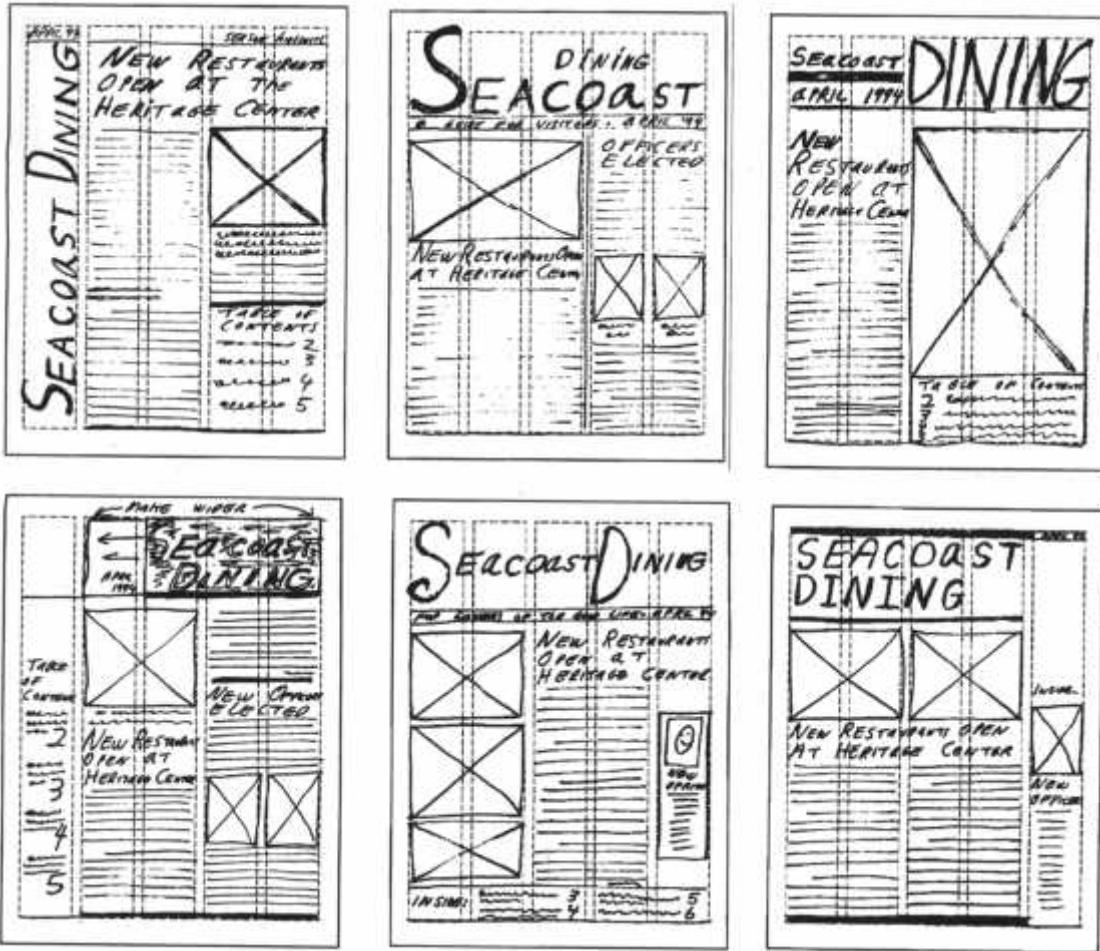 APRIL 94
SEACOAST DINING
NEW RESTAURANTS
OPEN AT THE
HERITAGE CENTER
TABLE OF
CONTENTS
2
3
4
5
DINING
SEACOAST
A GUIDE FOR VISITORS • APRIL '94
OFFICERS
ELECTED
NEW RESTAURANTS OPEN
AT HERITAGE CENTER
SEACOAST
APRIL 1994
DINING
NEW
RESTAURANTS
OPEN AT
HERITAGE CENTER
TABLE OF CONTENTS
2
3
MAKE WIDER
SEACOAST
DINING
APRIL
1994
TABLE
OF
CONTENTS
2
3
4
5
NEW RESTAURANT
OPEN AT
HERITAGE CENTER
NEW OFFICERS
ELECTED
SEACOAST DINING
APRIL 94
NEW RESTAURANTS
OPEN AT
HERITAGE CENTER
NEW
OFFICERS
INSIDE:
3
4
5
6
SEACOAST
DINING
NEW RESTAURANTS OPEN
AT HERITAGE CENTER
INSIDE
NEW
OFFICERS